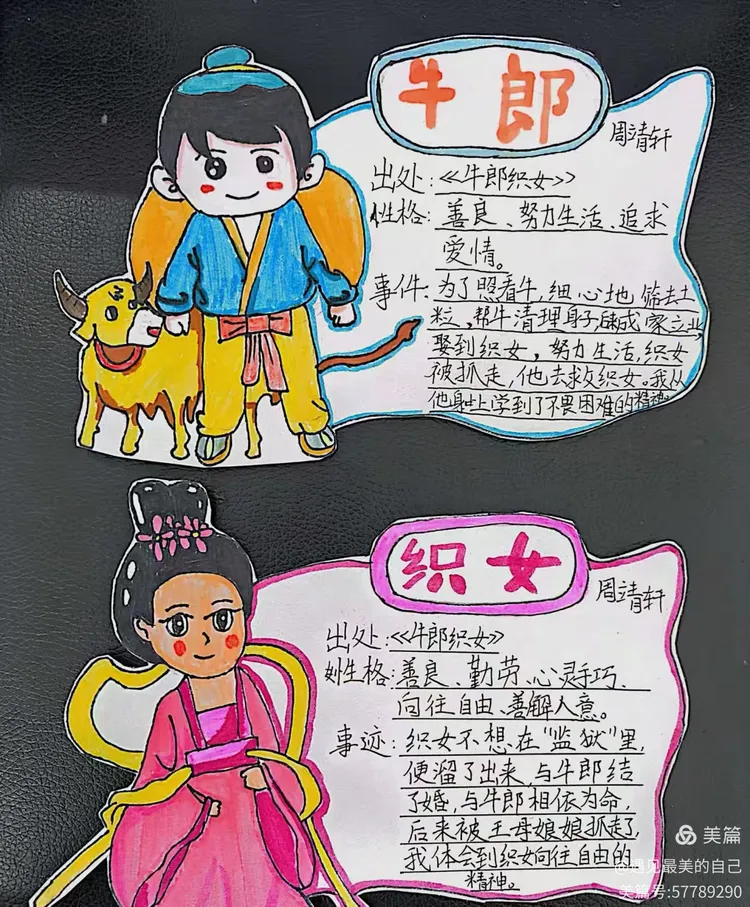 牛郎
周靖轩
出处:《牛郎织女》
性格:善良、努力生活、追求
爱情。
事件:为了照看牛,细心地筛去土
粒,帮牛清理身子,后成家立业,
娶到织女,努力生活,织女
被抓走,他去救织女。我从
他身上学到了不畏困难的精神。
织女
周靖轩
出处:《牛郎织女》
性格:善良、勤劳、心灵手巧、
向往自由、善解人意。
事迹:织女不想在"监狱"里,
便溜了出来,与牛郎结
了婚,与牛郎相依为命,
后来被王母娘娘抓走了,
我体会到织女向往自由的
精神。
美篇
@遇见最美的自己
美篇号:57789290